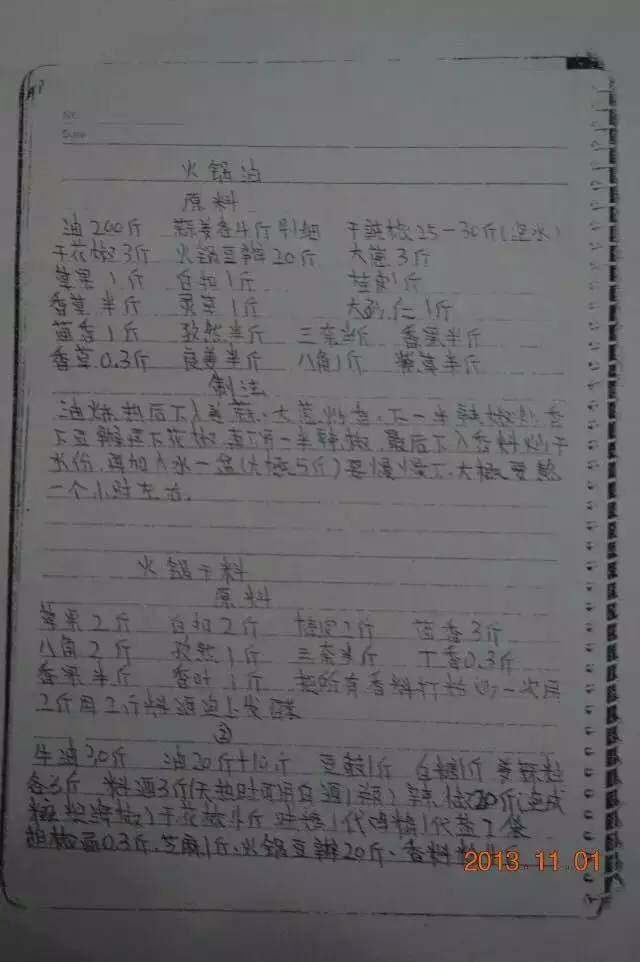 火锅油
原料
油200斤 蒜姜各4斤 干辣椒25-30斤(泡水)
干花椒3斤 火锅豆瓣20斤 大葱3斤
草果1斤 白扣1斤 桂南1斤
香草半斤 灵草1斤 大砂仁1斤
茴香1斤 孜然半斤 三奈半斤 香果半斤
香草0.3斤 良姜半斤 八角1斤 紫草半斤
制法
油炼热后下入姜蒜、大葱炸香,下一半辣椒
下豆瓣 下花椒 一半辣椒,最后下入香料炸干
水份,再加入水一盆(大概5斤)要慢慢下、大概要熬
一个小时左右。
火锅干料
原料
草果2斤 白扣2斤 桂皮2斤 茴香3斤
八角2斤 孜然1斤 三奈半斤 丁香0.3斤
香果半斤 香叶1斤 把所有香料打粉 一次用
2斤用2斤料酒泡上发酵
②
牛油30斤 油20斤+10斤 豆豉1斤 白糖1斤 姜蒜粒
各3斤 料酒3斤(天热时可用白酒1瓶) 辣椒20斤(泡成
糍粑辣椒) 干花椒4斤 味精1代鸡精1代盐2袋
胡椒面0.3斤、芝麻1斤、火锅豆瓣20斤、香料粉
2013.11.01